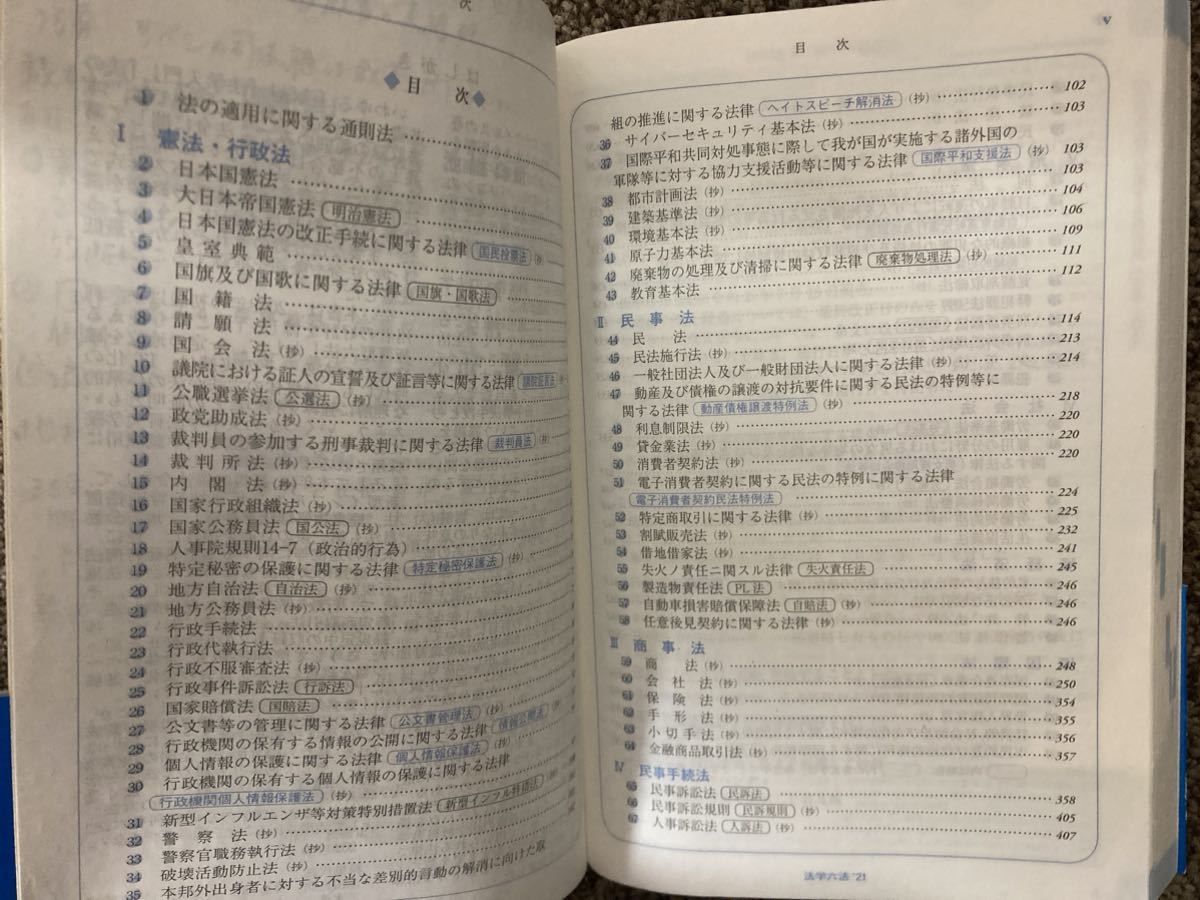 次
◆目 次◆
1 法の適用に関する通則法
I 憲法・行政法
2 日本国憲法
3 大日本帝国憲法 明治憲法
4 日本国憲法の改正手続に関する法律 国民投票法 (抄
5 皇室典範
6 国旗及び国歌に関する法律 国旗・国歌法
7 国籍法
8 請願法
9 国会法(抄)
10 議院における証人の宣誓及び証言等に関する法律 議院証言法
11 公職選挙法 公選法 (抄)
12 政党助成法(抄)
13 裁判員の参加する刑事裁判に関する法律 裁判員法 (抄)
14 裁判所法(抄)
15 内閣法(抄)
16 国家行政組織法(抄)
17 国家公務員法 国公法 (抄)
18 人事院規則14-7(政治的行為)
19 特定秘密の保護に関する法律 特定秘密保護法 (抄)
20 地方自治法 自治法 (抄)
21 地方公務員法(抄)
22 行政手続法
23 行政代執行法
24 行政不服審査法(抄)
25 行政事件訴訟法 行訴法
26 国家賠償法 国賠法
27 公文書等の管理に関する法律 公文書管理法 (抄)
28 行政機関の保有する情報の公開に関する法律 情報公開法
29 個人情報の保護に関する法律 個人情報保護法 (抄)
30 行政機関の保有する個人情報の保護に関する法律
行政機関個人情報保護法 (抄)
31 新型インフルエンザ等対策特別措置法 新型インフル特措法 (抄)
32 警察法(抄)
33 警察官職務執行法(抄)
34 破壊活動防止法(抄)
35 本邦外出身者に対する不当な差別的言動の解消に向けた取
v
目 次
組の推進に関する法律 ヘイトスピーチ解消法 (抄) 102
36 サイバーセキュリティ基本法(抄) 103
37 国際平和共同対処事態に際して我が国が実施する諸外国の
軍隊等に対する協力支援活動等に関する法律 国際平和支援法 (抄) 103
38 都市計画法(抄) 103
39 建築基準法(抄) 104
40 環境基本法(抄) 106
41 原子力基本法 109
42 廃棄物の処理及び清掃に関する法律 廃棄物処理法 (抄) 111
43 教育基本法 112
II 民事法
44 民法 114
45 民法施行法(抄) 213
46 一般社団法人及び一般財団法人に関する法律(抄) 214
47 動産及び債権の譲渡の対抗要件に関する民法の特例等に
関する法律 動産債権譲渡特例法 (抄) 218
48 利息制限法(抄) 220
49 貸金業法(抄) 220
50 消費者契約法(抄) 220
51 電子消費者契約に関する民法の特例に関する法律
電子消費者契約民法特例法 224
52 特定商取引に関する法律(抄) 225
53 割賦販売法(抄) 232
54 借地借家法(抄) 241
55 失火ノ責任ニ関スル法律 失火責任法 245
56 製造物責任法 PL法 246
57 自動車損害賠償保障法 自賠法 (抄) 246
58 任意後見契約に関する法律(抄) 246
III 商事法
59 商法(抄) 248
60 会社法(抄) 250
61 保険法(抄) 354
62 手形法(抄) 355
63 小切手法(抄) 356
64 金融商品取引法(抄) 357
IV 民事手続法
65 民事訴訟法 民訴法 358
66 民事訴訟規則 民訴規則 (抄) 405
67 人事訴訟法 人訴法 (抄) 407
法学六法'21